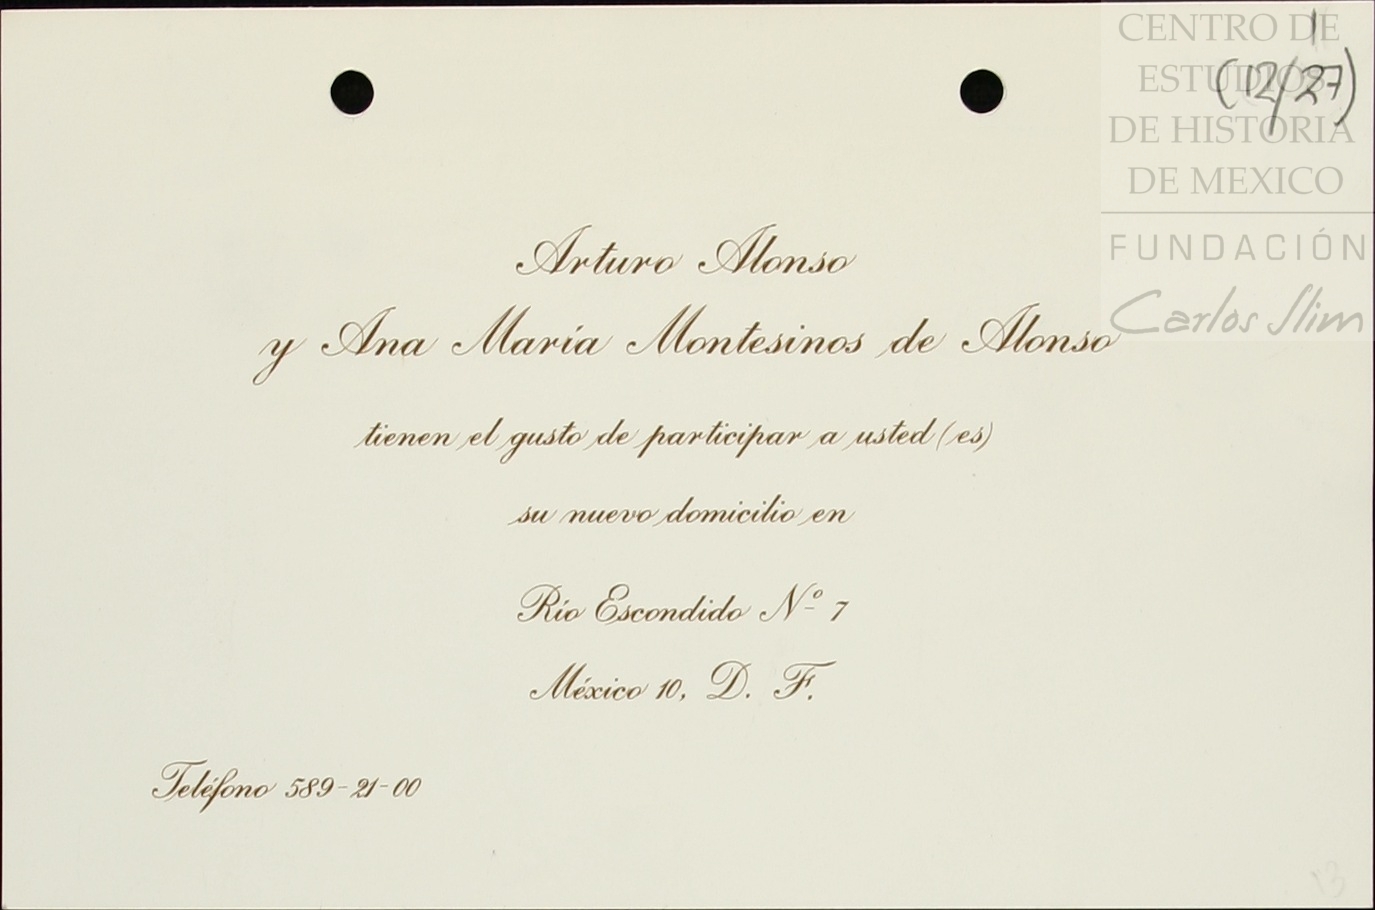 CENTRO DE
ESTUDIOS
DE HISTORIA
DE MEXICO
FUNDACIÓN
Carlos Slim
1
(12/27)
Arturo Alonso
y Ana María Montesinos de Alonso
tienen el gusto de participar a usted (es)
su nuevo domicilio en
Río Escondido Nº 7
México 10, D. F.
Teléfono 589-21-00
13